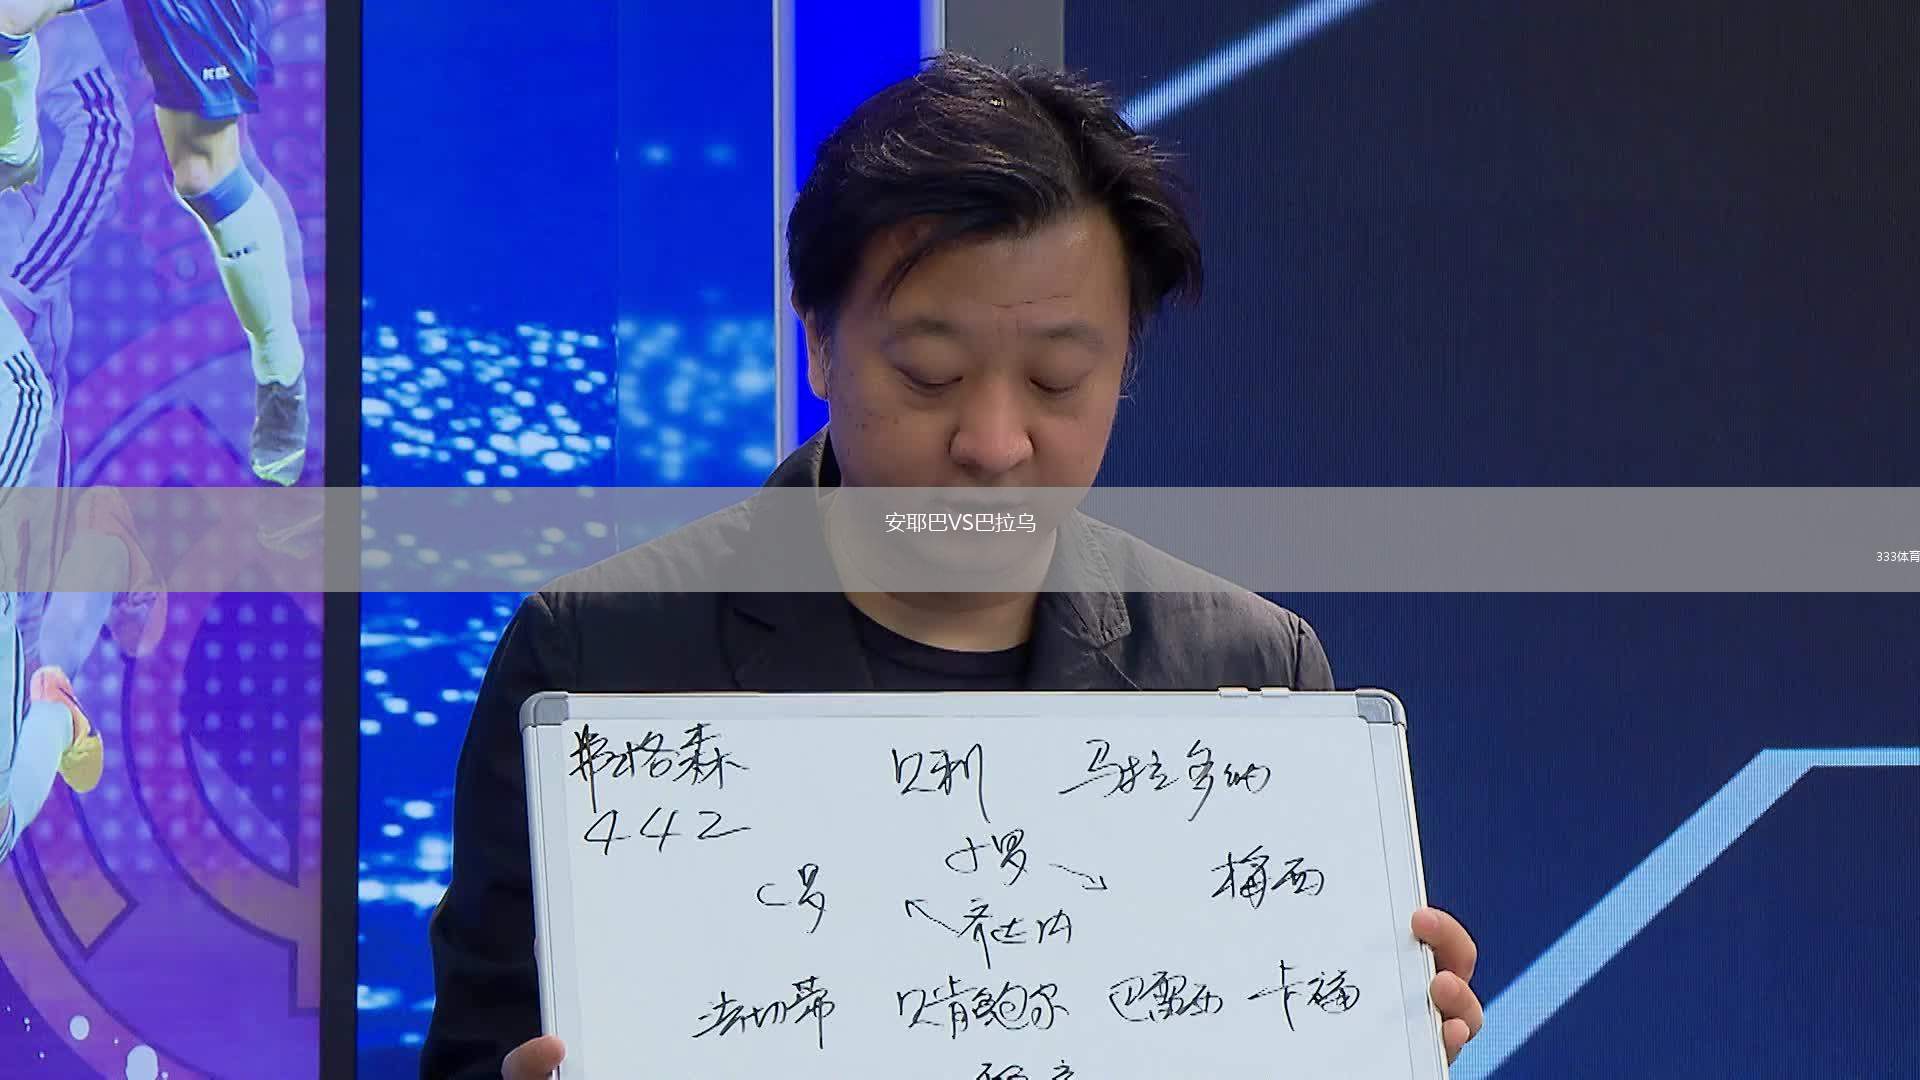 安耶巴VS巴拉乌
333体育
弗格森 贝利 马拉多纳
442
小罗
C罗 梅西
齐达内
法切蒂 贝肯鲍尔 巴雷西 卡福